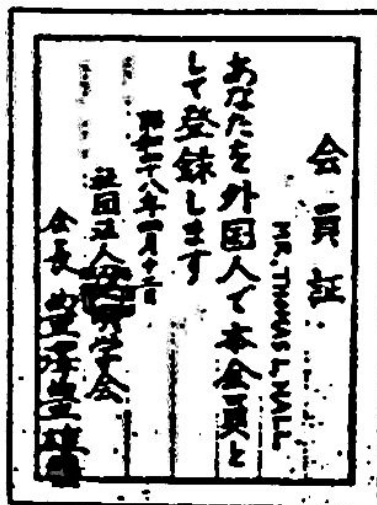 会員証
MR. THOMAS L. HALL
あなたを外国人で本会員と
して登録します
昭和二十八年一月十二日
社団法人 学会
会長 豊澤豊雄